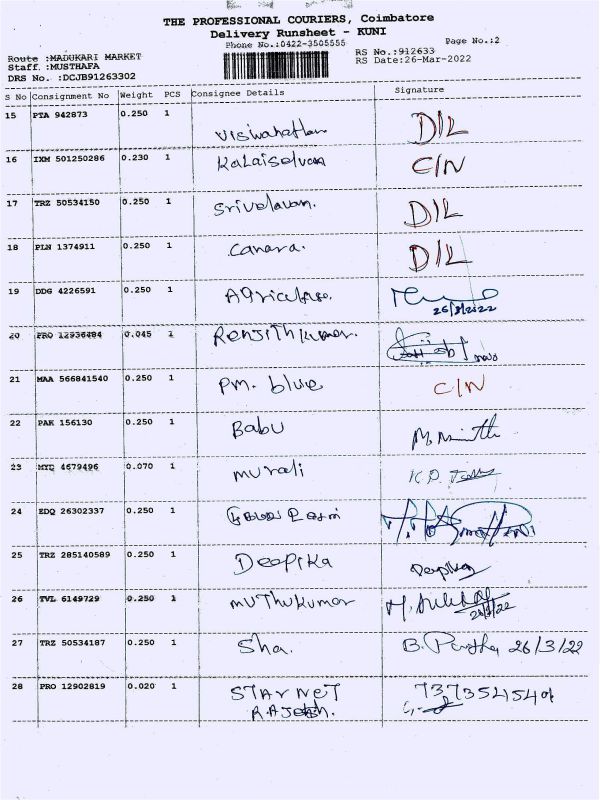 THE PROFESSIONAL COURIERS, Coimbatore
Delivery Runsheet - KUNI
Phone No.:0422-3505555
Page No.:2
Route :MADUKARI MARKET
RS No.:912633
Staff :MUSTHAFA
RS Date:26-Mar-2022
DRS No. :DCJB91263302
S No Consignment No Weight PCS Consignee Details Signature
15 PTA 942873 0.250 1 Viswanathan D/L
16 IXM 501250286 0.230 1 Kalaiselvan C/N
17 TRZ 50534150 0.250 1 Srivelavan. D/L
18 PLN 1374911 0.250 1 Canara. D/L
19 DDG 4226591 0.250 1 26/3/2022
20 PRO 12936484 0.045 1 Renjith kumar.
21 MAA 566841540 0.250 1 PM. blue C/N
22 PAK 156130 0.250 1 Babu
23 MYQ 4679496 0.070 1 murali K.P.
24 EDQ 26302337 0.250 1
25 TRZ 285140589 0.250 1 Deepika Deepika
26 TVL 6149729 0.250 1 muthukumar
27 TRZ 50534187 0.250 1 Sha. B. 26/3/22
28 PRO 12902819 0.020 1 STAR NET
RAJESH.